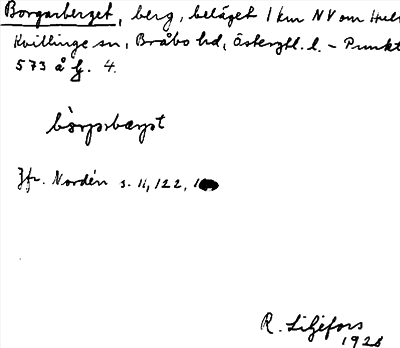 Borgarberget, berg, beläget 1 km NV om
Kvillinge sn, Bråbo hd, Östergtl. l. – Punkt
573 å fg. 4.
Jfr. Nordén s. 11, 122,
R. Liljefors
1928